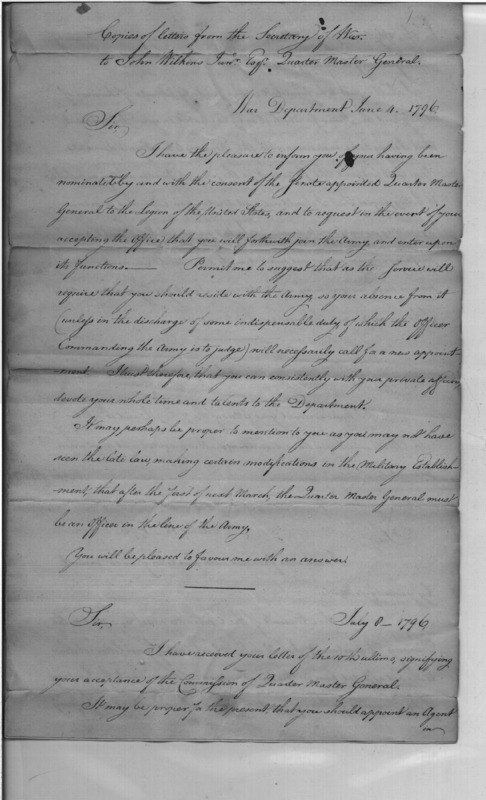 Copies of letters from the Secretary of War
to John Wilkins Junr. Esqr. Quarter Master General.
War Department June 4. 1796
Sir,
I have the pleasure to inform you of your having been
nominated by and with the consent of the Senate appointed Quarter Master
General to the Legion of the United States, and to request in the event of your
accepting the Office, that you will forthwith join the Army, and enter upon
its functions. — Permit me to suggest that as the service will
require that you should reside with the Army, so your absence from it
(unless in the discharge of some indespensable duty of which the Officer
Commanding the Army is to judge) will necessarily call for a new appoint-
ment. I trust therefore, that you can consistently with your private affairs,
devote your whole time and talents to the Department.
It may perhaps be proper to mention to you as you may not have
seen the late law, making certain modifications in the Military Establish-
ment, that after the first of next March, the Quarter Master General must
be an Officer in the line of the Army.
You will be pleased to favour me with an answer.
Sir,
July 8 — 1796
I have received your letter of the 10th ultimo, signifying
your acceptance of the Commission of Quarter Master General.
It may be proper, for the present, that you should appoint an Agent
in